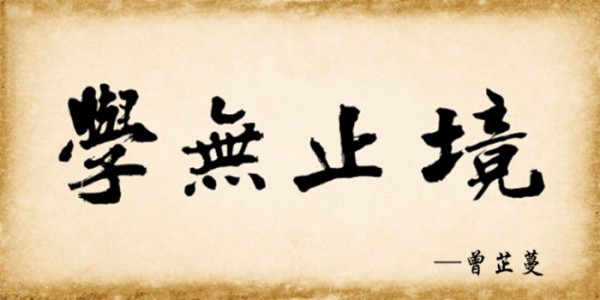 學無止境
—曾芷蔓